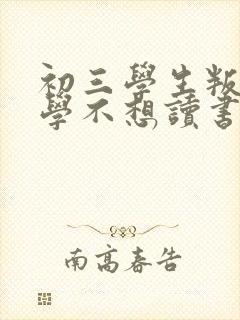 初三學生叛
學不想讀書
南高春告